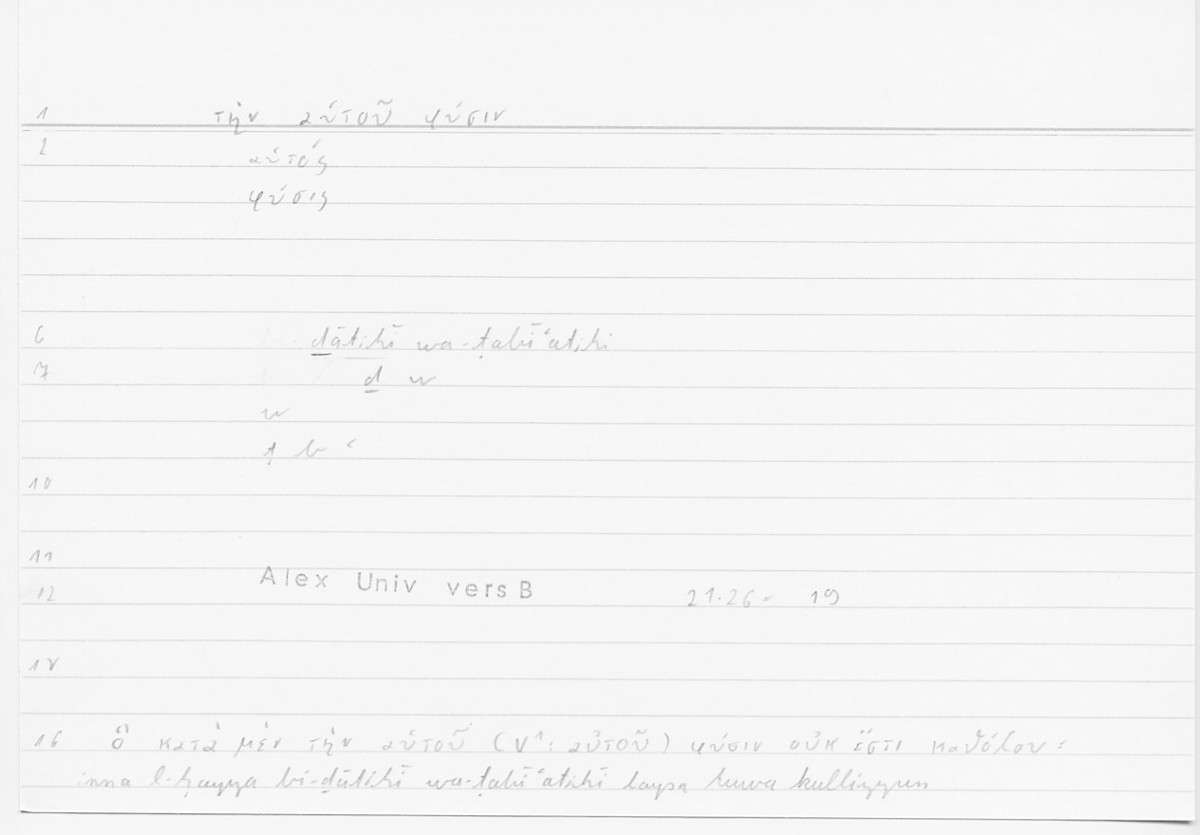 1 τὴν αὑτοῦ φύσιν
2 αὑτός
φύσις
6 ḏātihī wa-ṭabīʿatihi
7 ḏ w
w
ṭ b ʿ
10
11
12 Alex Univ vers B 21.26- 19
14
16 ὃ κατὰ μὲν τὴν αὑτοῦ (V¹: αὐτοῦ) φύσιν οὐκ ἔστι καθόλου:
inna l-ḥayya bi-ḏātihī wa-ṭabīʿatihī laysa huwa kulliyyun